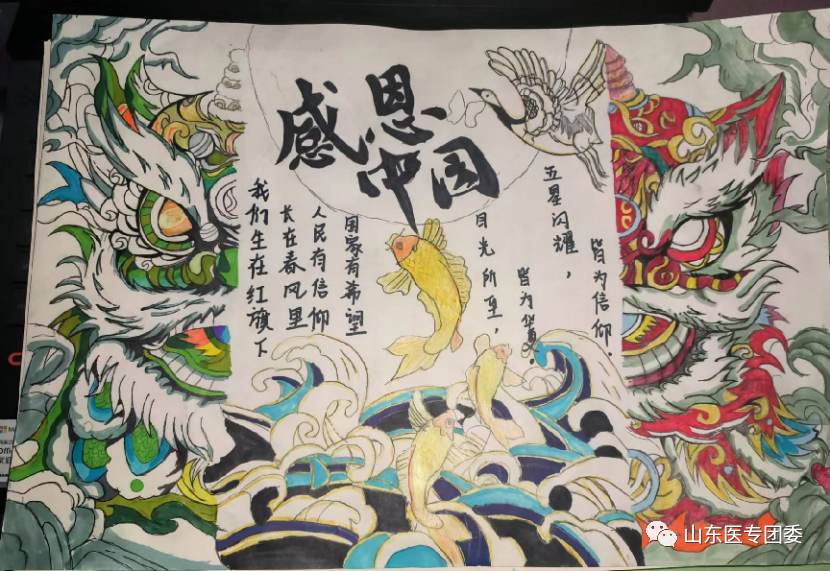 感恩
中国
我们生在红旗下
长在春风里
人民有信仰
国家有希望
目光所至，
皆为华夏
五星闪耀，
皆为信仰.
山东医专团委